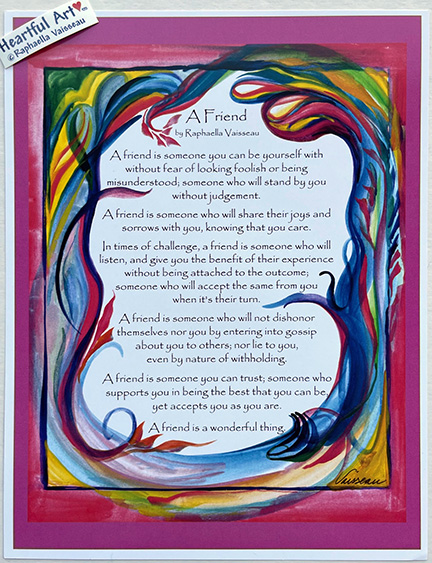 Heartful Art
© Raphaella Vaisseau
A Friend
by Raphaella Vaisseau
A friend is someone you can be yourself with
without fear of looking foolish or being
misunderstood; someone who will stand by you
without judgement.
A friend is someone who will share their joys and
sorrows with you, knowing that you care.
In times of challenge, a friend is someone who will
listen, and give you the benefit of their experience
without being attached to the outcome;
someone who will accept the same from you
when it's their turn.
A friend is someone who will not dishonor
themselves nor you by entering into gossip
about you to others; nor lie to you,
even by nature of withholding.
A friend is someone you can trust; someone who
supports you in being the best that you can be,
yet accepts you as you are.
A friend is a wonderful thing.
Vaisseau